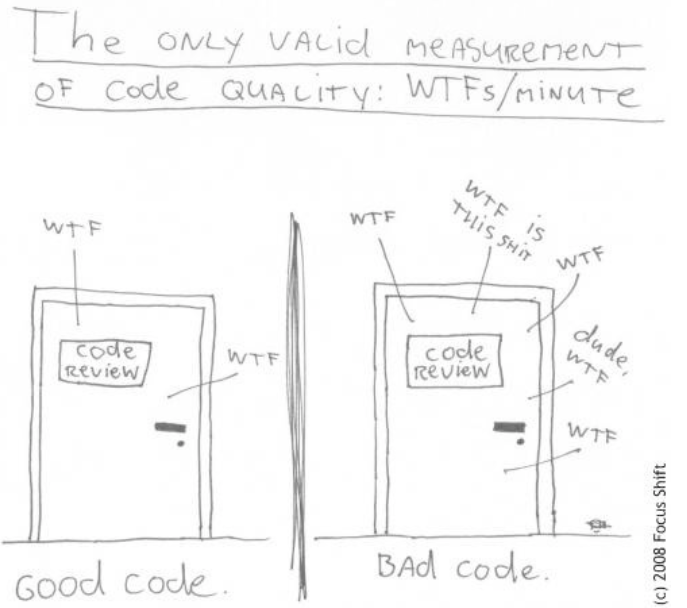 The ONLY VALID MEASUREMENT
OF code QUALITY: WTFs/MINUTE
WTF
code
REVIEW
WTF
Good code.
WTF
WTF is
THIS SHIT
WTF
code
REVIEW
dude,
WTF
WTF
BAd code.
(c) 2008 Focus Shift